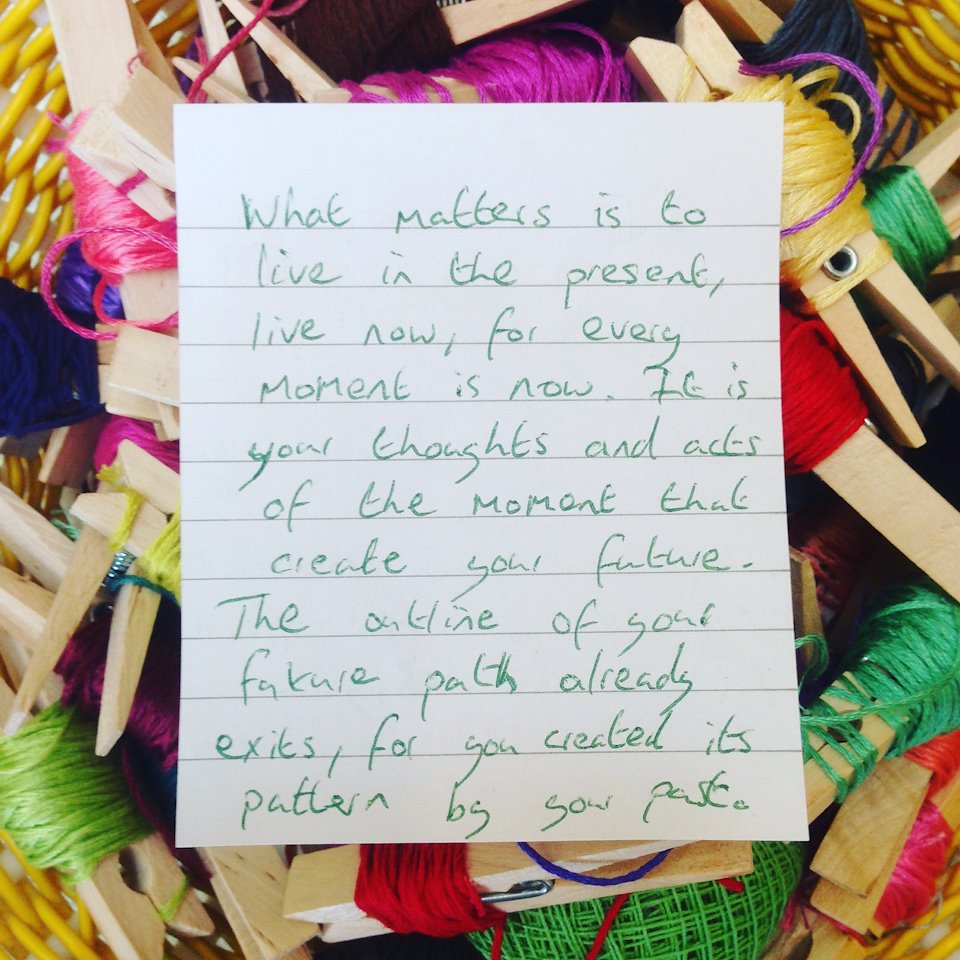 What matters is to
live in the present,
live now, for every
moment is now. It is
your thoughts and acts
of the moment that
create your future.
The outline of your
future path already
exits, for you created its
pattern by your past.